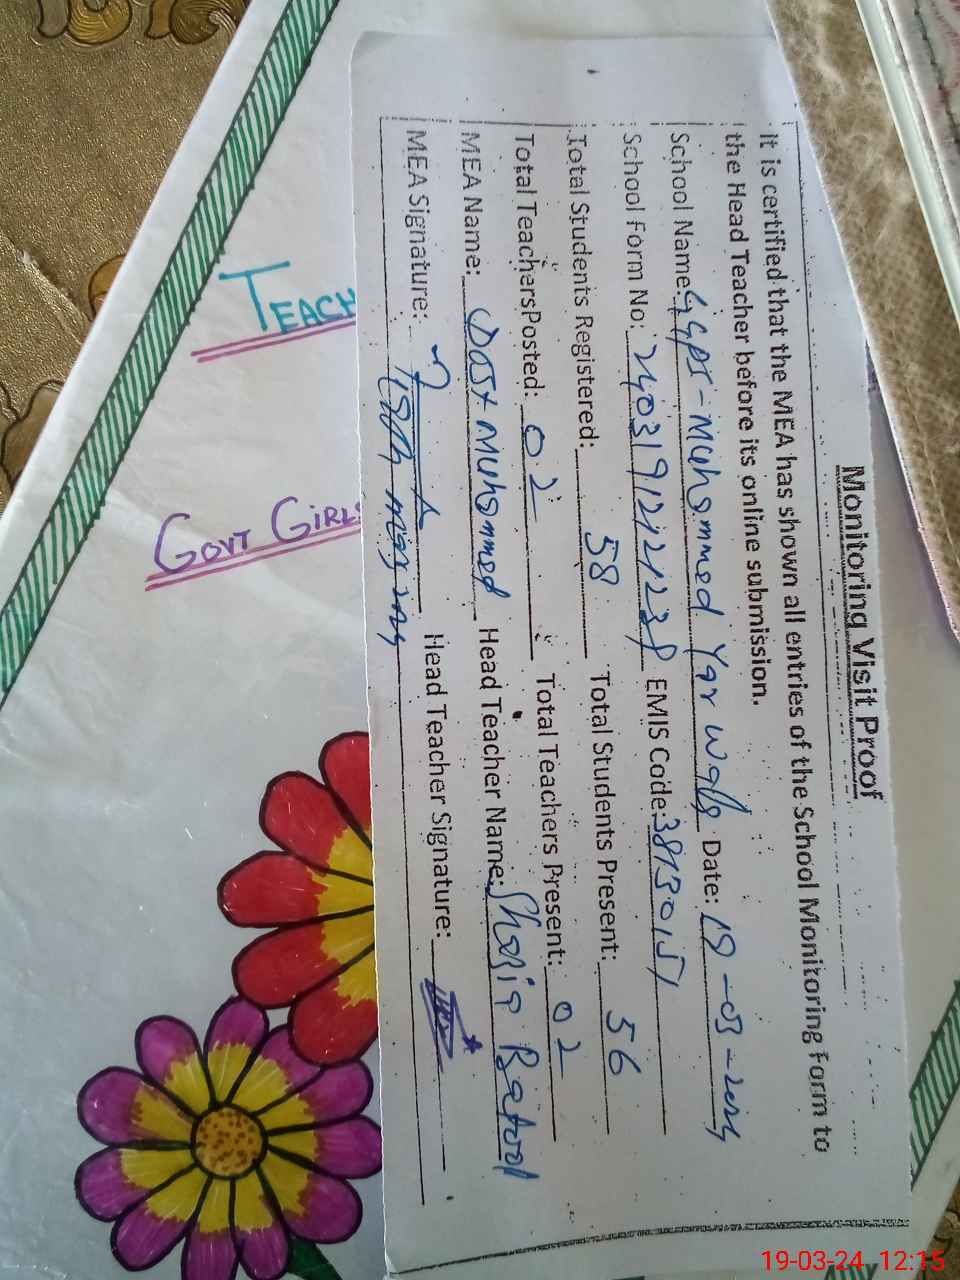 Monitoring Visit Proof
It is certified that the MEA has shown all entries of the School Monitoring Form to
the Head Teacher before its online submission.
School Name: GGPS-Muhammad Yar Wala Date: 19-03-2024
School Form No: EMIS Code: 38130151
Total Students Registered: 58 Total Students Present: 56
Total Teachers Posted: 02 Total Teachers Present: 02
MEA Name: Dost Muhammed Head Teacher Name: Shazia Batool
MEA Signature: Head Teacher Signature:
TEACH
GOVT GIRLS
19-03-24 12:15